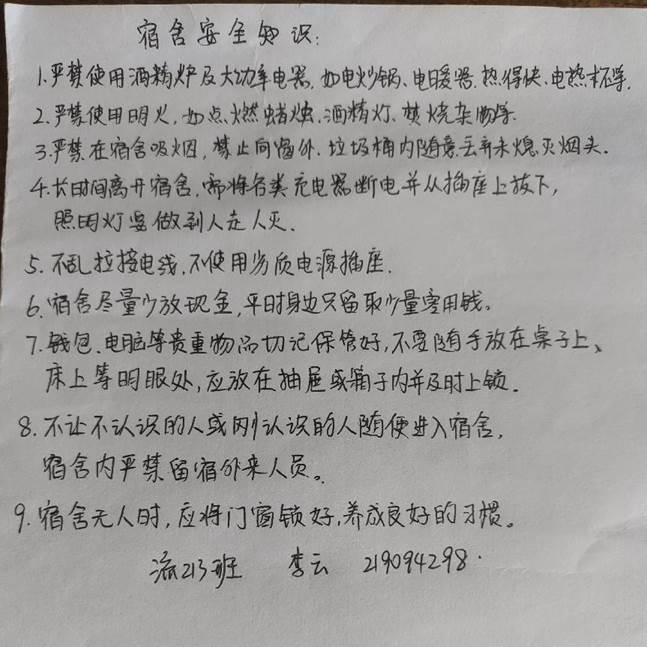 宿舍安全知识:
1.严禁使用酒精炉及大功率电器,如电炒锅、电暖器、热得快、电热杯等.
2.严禁使用明火,如点燃蜡烛、酒精灯、焚烧杂物等.
3.严禁在宿舍吸烟,禁止向窗外、垃圾桶内随意丢弃未熄灭烟头.
4.长时间离开宿舍,需将各类充电器断电并从插座上拔下,
照明灯要做到人走人灭.
5.不乱拉接电线,不使用劣质电源插座.
6.宿舍尽量少放现金,平时身边只留取少量零用钱。
7.钱包、电脑等贵重物品切记保管好,不要随手放在桌子上、
床上等明眼处,应放在抽屉或箱子内并及时上锁.
8.不让不认识的人或刚认识的人随便进入宿舍,
宿舍内严禁留宿外来人员。
9.宿舍无人时,应将门窗锁好,养成良好的习惯。
流213班 李云 219094298.